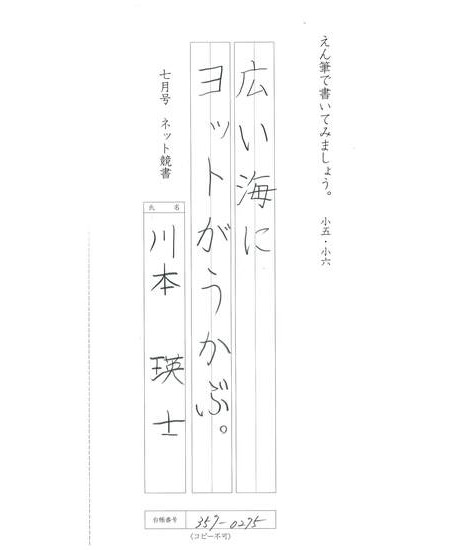 えん筆で書いてみましょう。 小五・小六
広い海に
ヨットがうかぶ。
七月号 ネット競書
氏名
川本 瑛士
台帳番号 357-0275
(コピー不可)